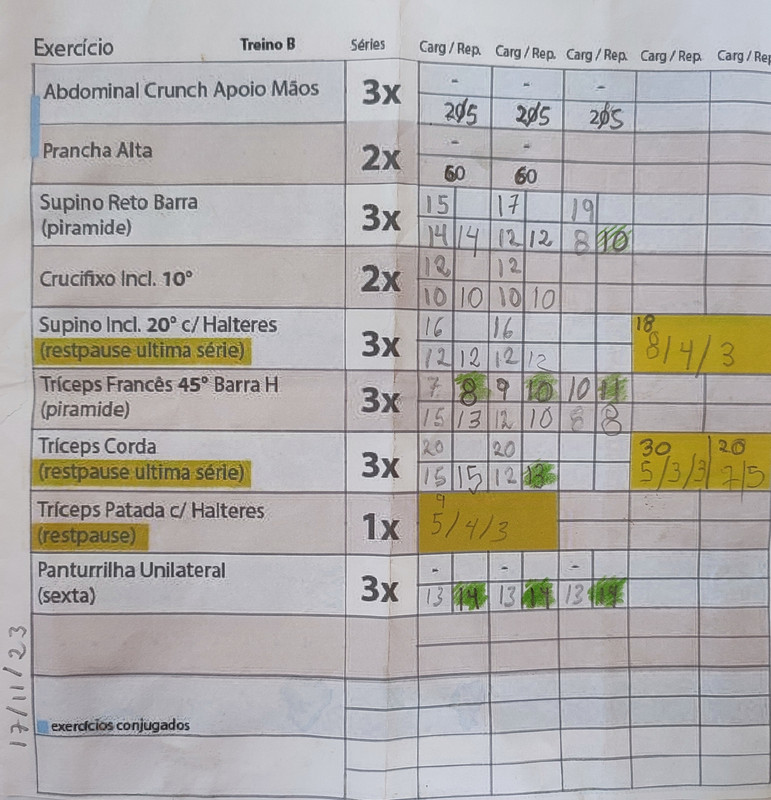 Exercício Treino B Séries Carg / Rep. Carg / Rep. Carg / Rep. Carg / Rep. Carg / Rep
Abdominal Crunch Apoio Mãos 3x - - -
205 205 205
Prancha Alta 2x - -
60 60
Supino Reto Barra 3x 15 17 19
(piramide) 14 14 12 12 8 10
Crucifixo Incl. 10° 2x 12 12
10 10 10 10
Supino Incl. 20° c/ Halteres 3x 16 16 18
(restpause ultima série) 12 12 12 12 8/4/3
Tríceps Francês 45° Barra H 3x 7 8 9 10 10 11
(piramide) 15 13 12 10 8 8
Tríceps Corda 3x 20 20 30 20
(restpause ultima série) 15 15 12 13 5/3/3 7/5
Tríceps Patada c/ Halteres 1x 9
(restpause) 5/4/3
Panturrilha Unilateral 3x - - -
(sexta) 13 14 13 14 13 14
17/11/23
exercícios conjugados